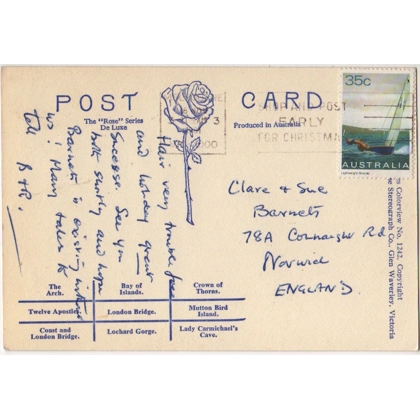 POST CARD
The "Rose" Series
De Luxe
Produced in Australia
SHOP AND POST
EARLY
FOR CHRISTMAS
35c
AUSTRALIA
Hair very trouble free
and holiday great
Success. See you
both shortly and hope
Barnets is existing without
us! Many tales to
tell. B+R.
Clare & Sue
Barnett
78A Connaught Rd
Norwich
ENGLAND.
The
Arch.
Bay of
Islands.
Crown of
Thorns.
Twelve Apostles.
London Bridge.
Mutton Bird
Island.
Coast and
London Bridge.
Lochard Gorge.
Lady Carmichael's
Cave.
Colorview No. 1242. Copyright
Stereograph Co., Glen Waverley, Victoria